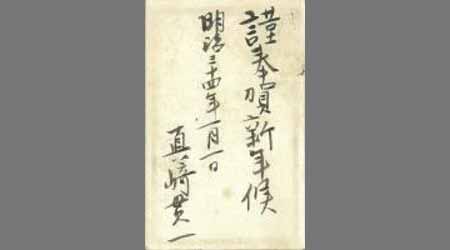 謹奉賀新年候
明治三十四年一月一日
真崎貫一